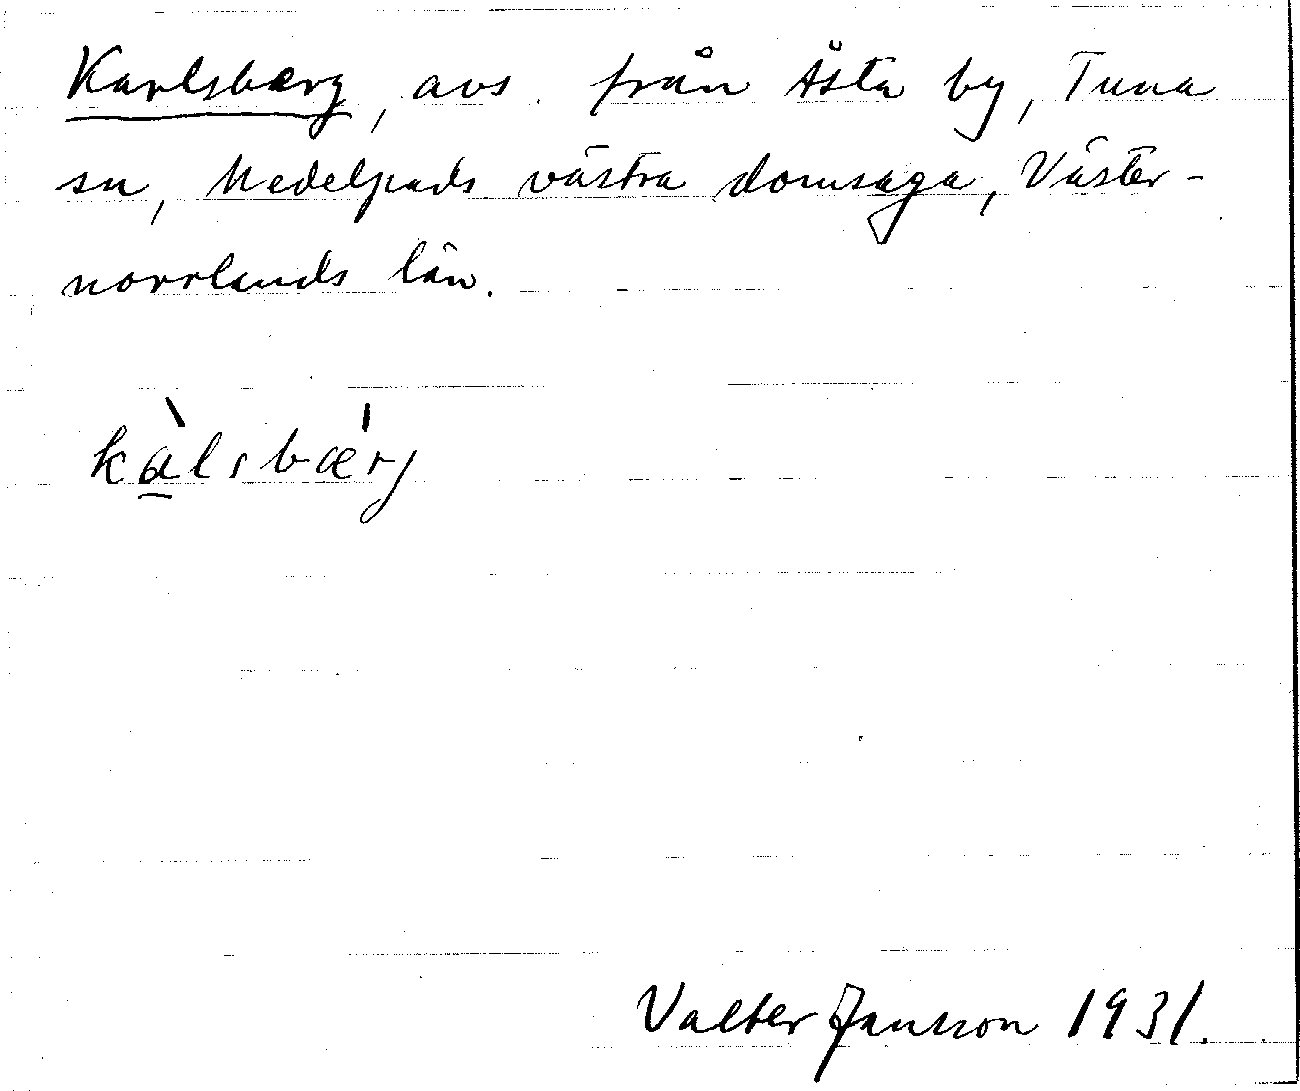 Karlsberg, avs. från Ästa by, Tuna
sn, Medelpads västra domsaga, Väster-
norrlands län.
kàlsbǽrj
Valter Jansson 1931.